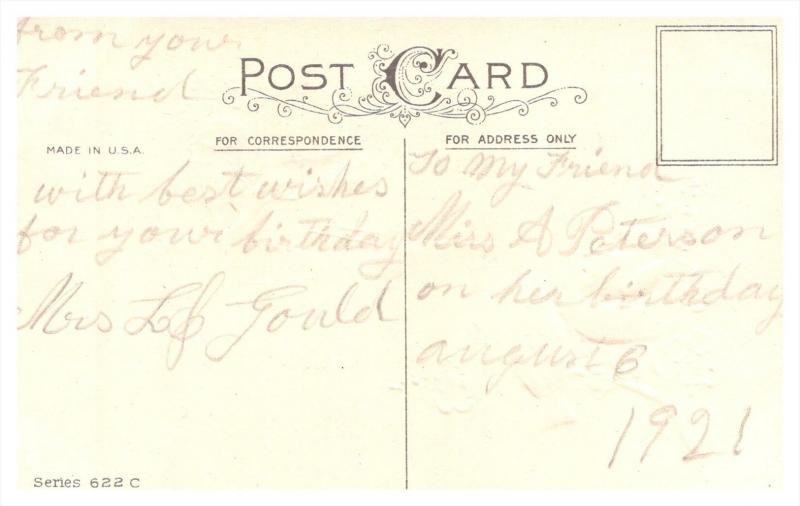 from your
Friend
POST CARD
MADE IN U.S.A.
FOR CORRESPONDENCE
with best wishes
for your birthday
Mrs LJ Gould
Series 622 C
FOR ADDRESS ONLY
To My Friend
Miss A Peterson
on her birthday
august 6
1921